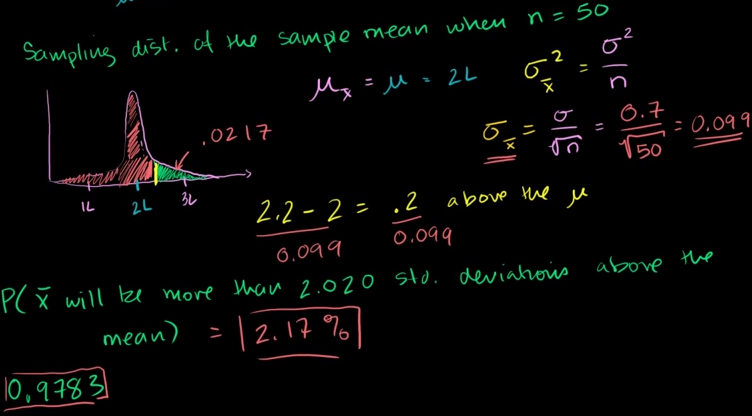 Sampling dist. of the sample mean when n = 50
μ_x̄ = μ = 2L
σ²_x̄ = σ²/n
σ_x̄ = σ/√n = 0.7/√50 = 0.099
.0217
1L 2L 3L
2.2 - 2 / 0.099 = .2 / 0.099 above the μ
P(x̄ will be more than 2.020 std. deviations above the
mean) = 2.17 %
0.9783